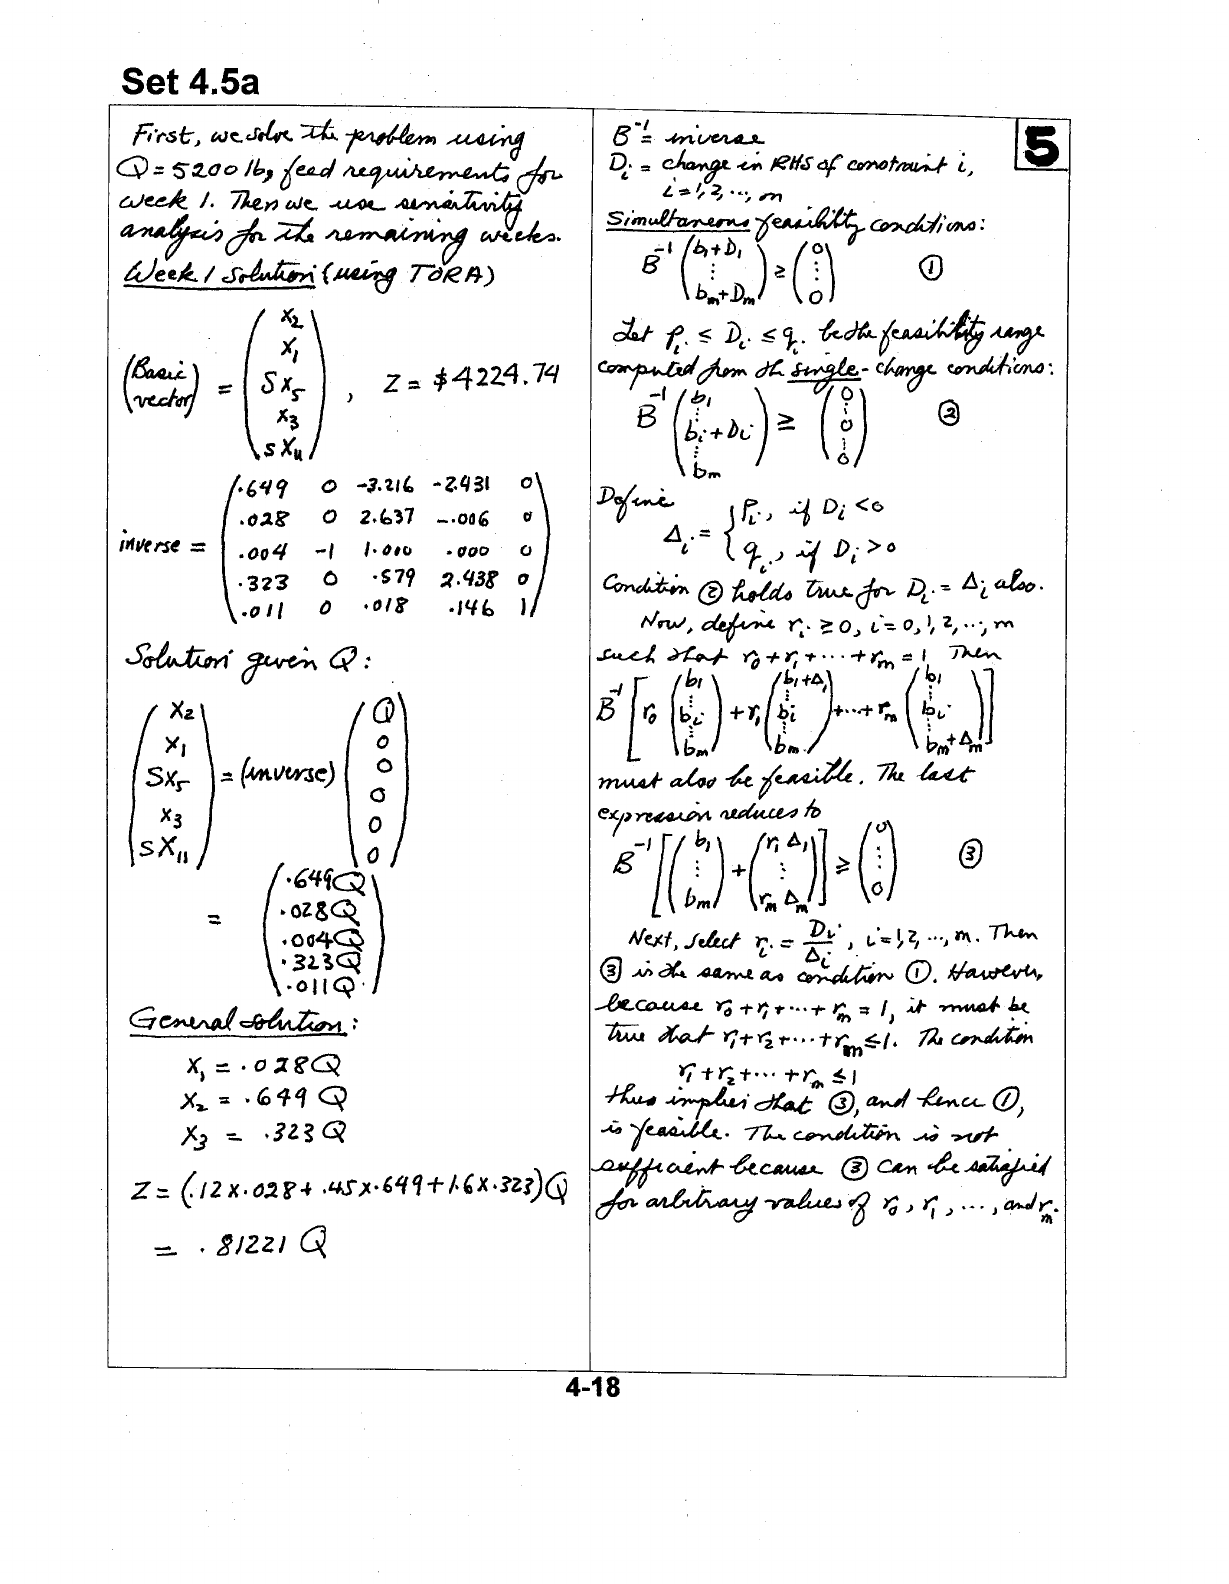 Set 4.5a
First, we solve the problem using
Q = 5200 lb, feed requirements for
week 1. Then we use sensitivity
analysis for the remaining weeks.
Week 1 Solution (using TORA)
(Basic vector) = (x2 x1 Sx5 x3 sx11), Z = $4224.74
inverse =
.649 0 -3.216 -2.431 0
.028 0 2.637 -.006 0
.004 -1 1.000 .000 0
.323 0 .579 2.438 0
.011 0 .018 .146 1
Solution given Q:
(x2 x1 Sx5 x3 sx11) = (inverse) (Q 0 0 0 0 0)
= (.649Q .028Q .004Q .323Q .011Q)
General solution:
x1 = .028Q
x2 = .649Q
x3 = .323Q
Z = (.12x.028+.45x.649+1.6x.323)Q
= .81221 Q
5
B^-1 = inverse
Di = change in RHS of constraint i,
i=1,2,...,m
Simultaneous feasibility conditions:
B^-1 (b1+D1 ⋮ bm+Dm) ≥ (0 ⋮ 0) ①
Let pi ≤ Di ≤ qi be the feasibility range
computed from the single-change conditions:
B^-1 (b1 ⋮ bi+Di ⋮ bm) ≥ (0 ⋮ 0 ⋮ 0) ②
Define
Δi = { pi, if Di < 0
qi, if Di > 0
Condition ② holds true for Di = Δi also.
Now, define ri ≥ 0, i=0,1,2,...,m
such that r0+r1+...+rm = 1. Then
B^-1 [r0 (b1 ⋮ bi ⋮ bm) + r1 (b1+Δ1 ⋮ bi ⋮ bm) +...+ rm (b1 ⋮ bi ⋮ bm+Δm)]
must also be feasible. The last
expression reduces to
B^-1 [(b1 ⋮ bm) + (r1Δ1 ⋮ rmΔm)] ≥ (0 ⋮ 0) ③
Next, select ri = Di/Δi, i=1,2,...,m. Then
③ is the same as condition ①. However,
because r0+r1+...+rm = 1, it must be
true that r1+r2+...+rm ≤ 1. The condition
r1+r2+...+rm ≤ 1
thus implies that ③, and hence ①,
is feasible. The condition is not
sufficient because ③ can be satisfied
for arbitrary values of r0, r1, ..., and rm.
4-18